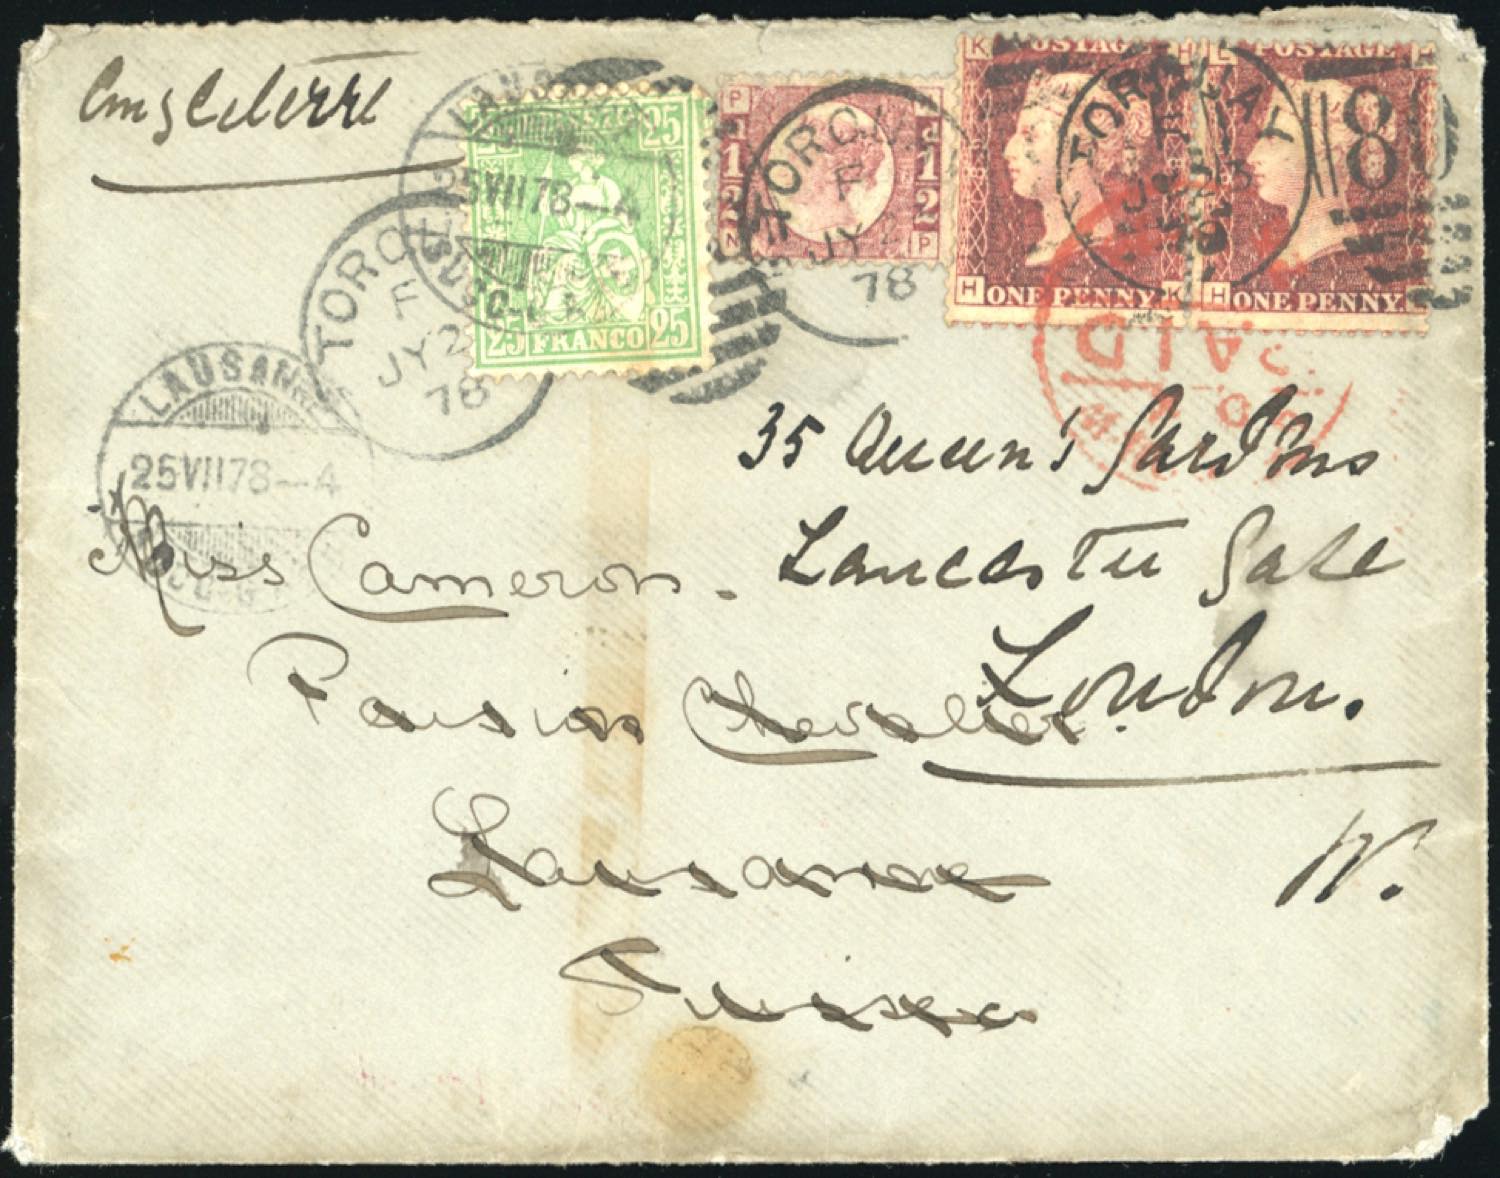 Angleterre
LAUSANNE
25 VII 78 — 4
TORQUAY
F
JY 2
78
25 25
25 FRANCO 25
P
N P
1/2 1/2
TORQUAY
F
JY 2
78
K POSTAGE H
H ONE PENNY. K
L POSTAGE H
H ONE PENNY.
TORQUAY
F
78
8
PAID
LAUSANNE
25 VII 78 — 4
35 Queen's Gardens
Lancaster Gate
London.
W.
Miss Cameron.
Pension Chevalier.
Lausanne
Suisse